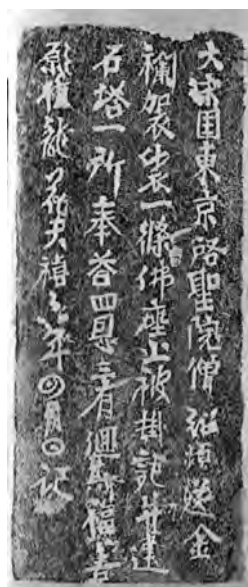 大宋国東京啓聖院僧紹頻送金
襴袈裟一條佛座上被掛記并建
石塔一所奉荅四恩三有迴斯福善
願值龍花天禧六年四月日記